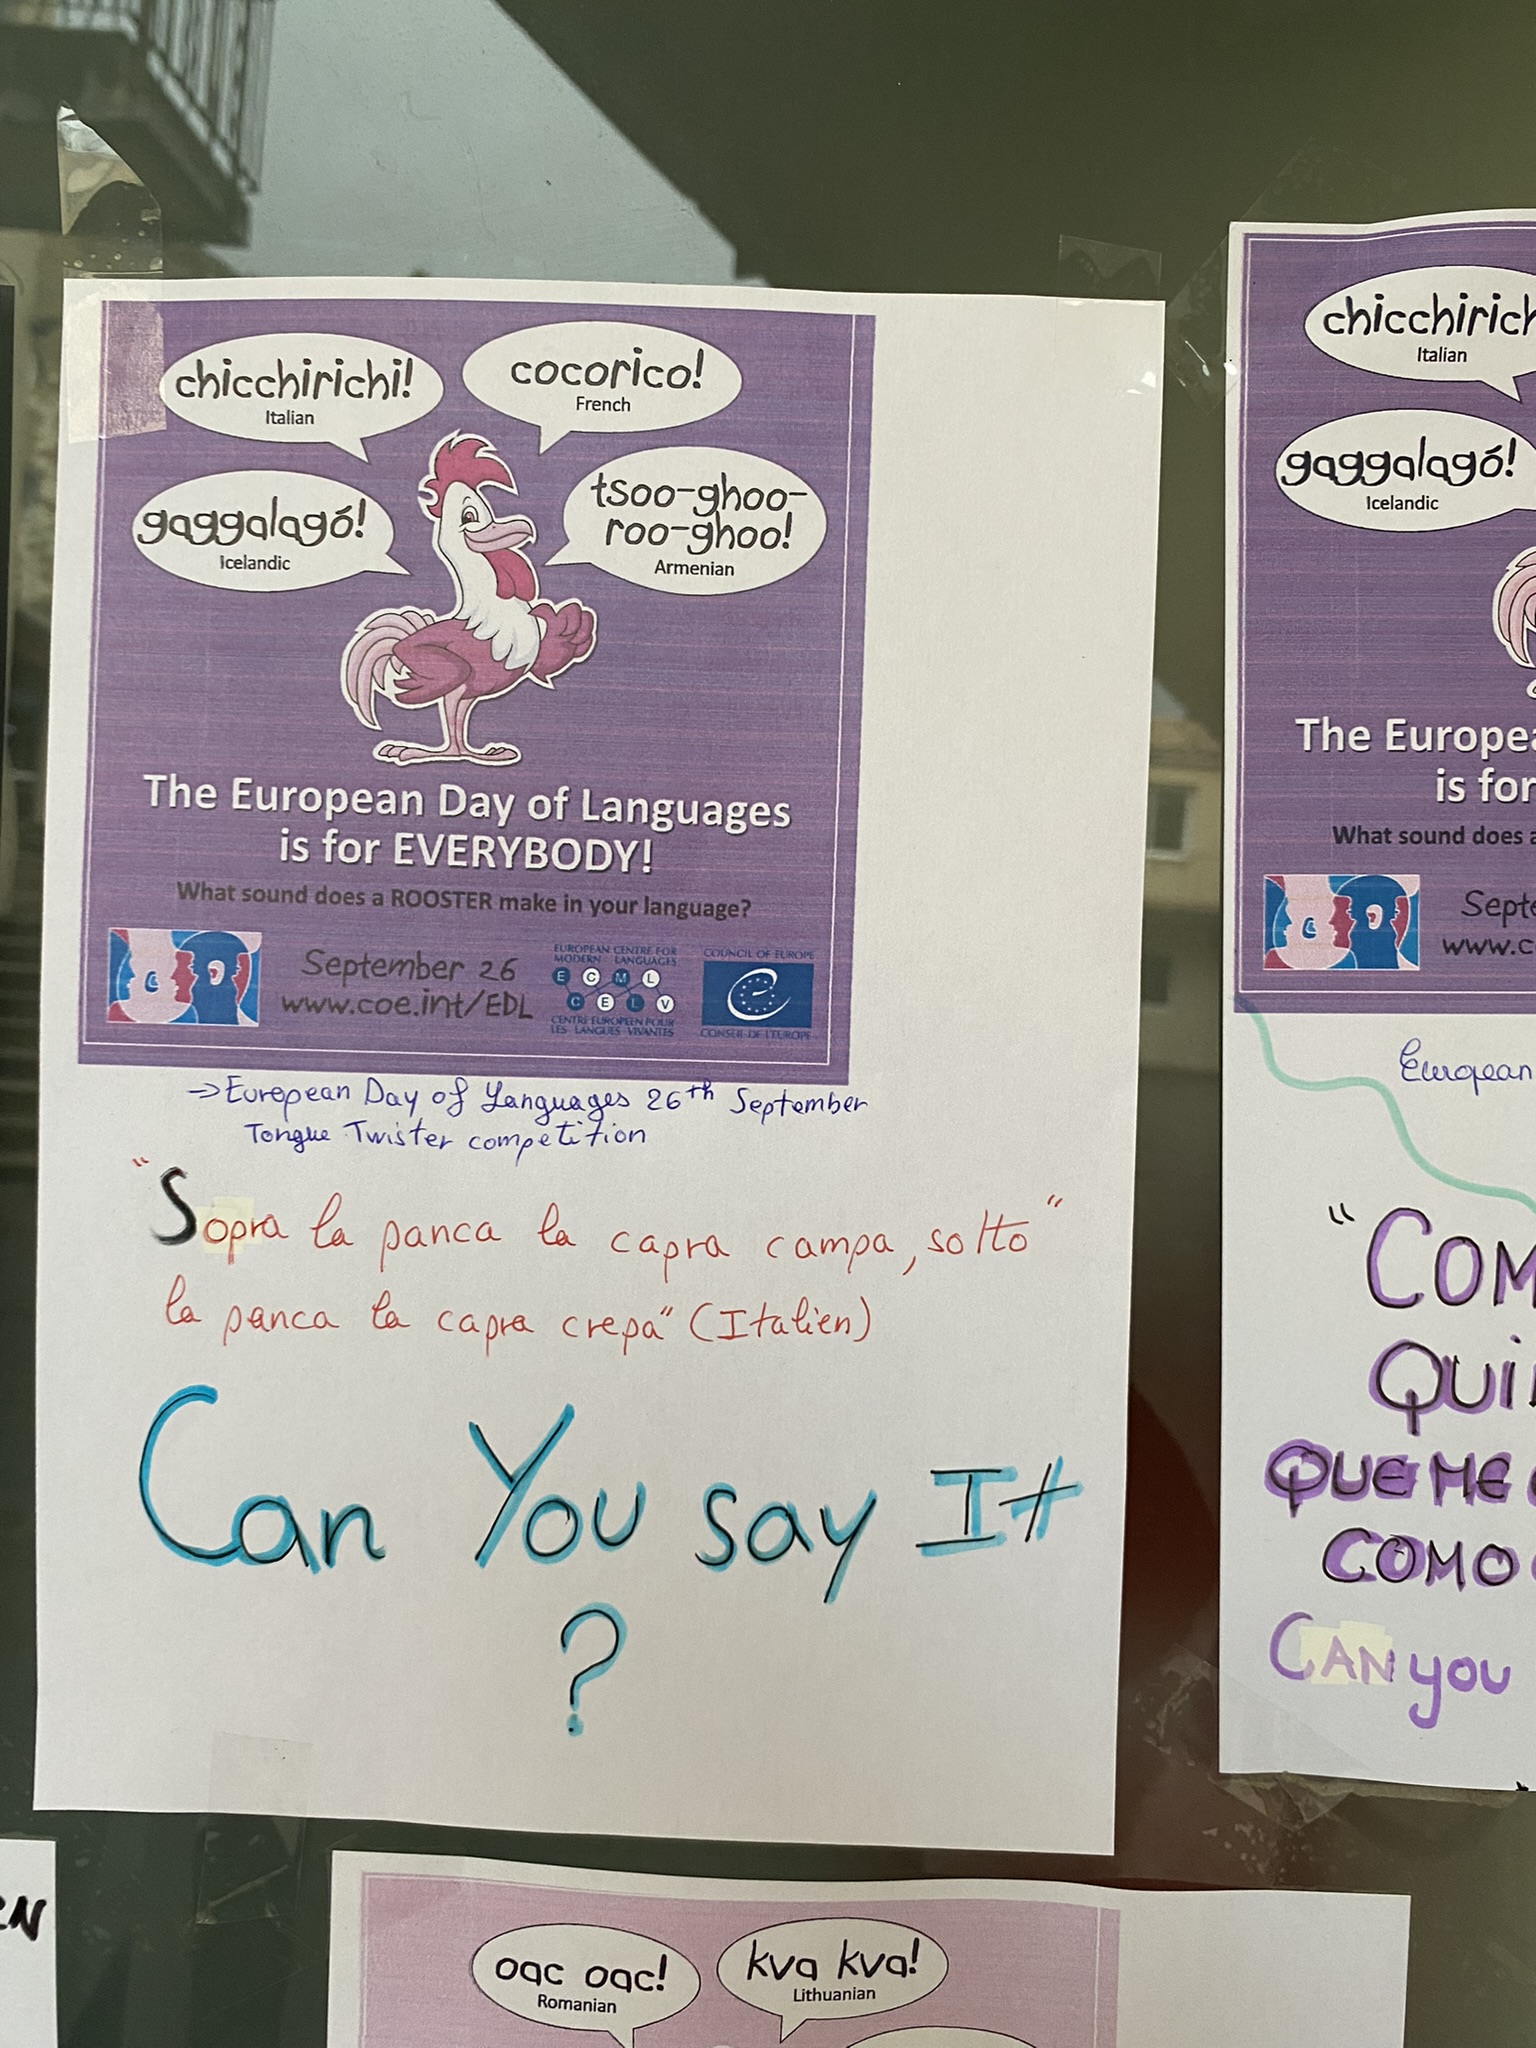 chicchirichi!
Italian
cocorico!
French
gaggalagó!
Icelandic
tsoo-ghoo-
roo-ghoo!
Armenian
The European Day of Languages
is for EVERYBODY!
What sound does a ROOSTER make in your language?
September 26
www.coe.int/EDL
EUROPEAN CENTRE FOR
MODERN LANGUAGES
E C M L
C E L V
CENTRE EUROPEEN POUR
LES LANGUES VIVANTES
COUNCIL OF EUROPE
CONSEIL DE L'EUROPE
→ European Day of Languages 26th September
Tongue Twister competition
"Sopra la panca la capra campa, sotto"
la panca la capra crepa" (Italien)
Can You say It
?
chicchirich
Italian
gaggalagó!
Icelandic
The Europea
is for
What sound does a
Septe
www.c
European
"COM
QUI
QUE ME
COMO
CAN you
oac oac!
Romanian
kva kva!
Lithuanian